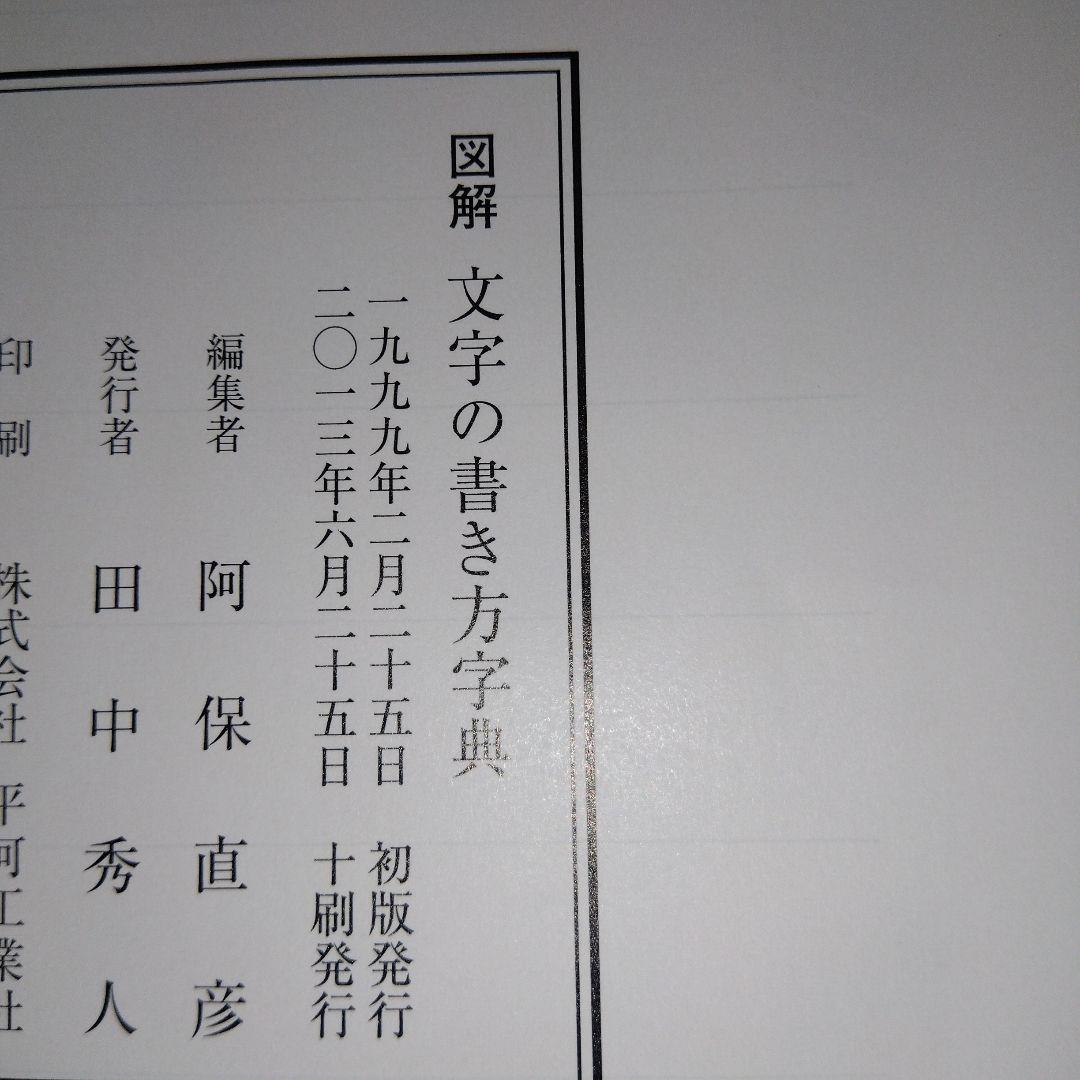 図解 文字の書き方字典
一九九九年二月二十五日 初版発行
二〇一三年六月二十五日 十刷発行
編集者 阿保直彦
発行者 田中秀人
印刷 株式会社 平河工業社